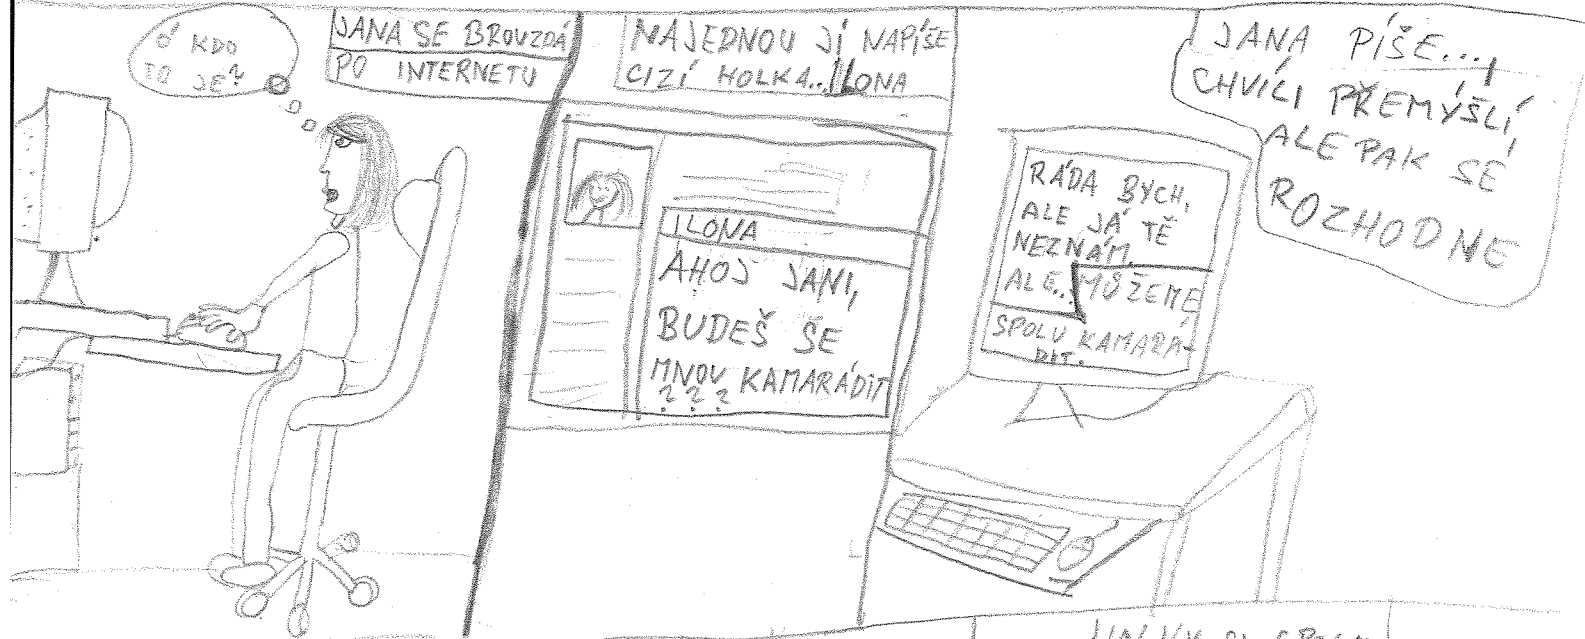 Ó KDO
TO JE?
JANA SE BROUZDÁ
PO INTERNETU
NAJEDNOU JÍ NAPÍŠE
CIZÍ HOLKA...ILONA
ILONA
AHOJ JANI,
BUDEŠ SE
MNOU KAMARÁDIT
? ? ?
JANA PÍŠE...,
CHVÍLI PŘEMÝŠLÍ,
ALE PAK SE
ROZHODNE
RÁDA BYCH,
ALE JÁ TĚ
NEZNÁM.
ALE... MŮŽEME
SPOLU KAMARÁ-
DIT.